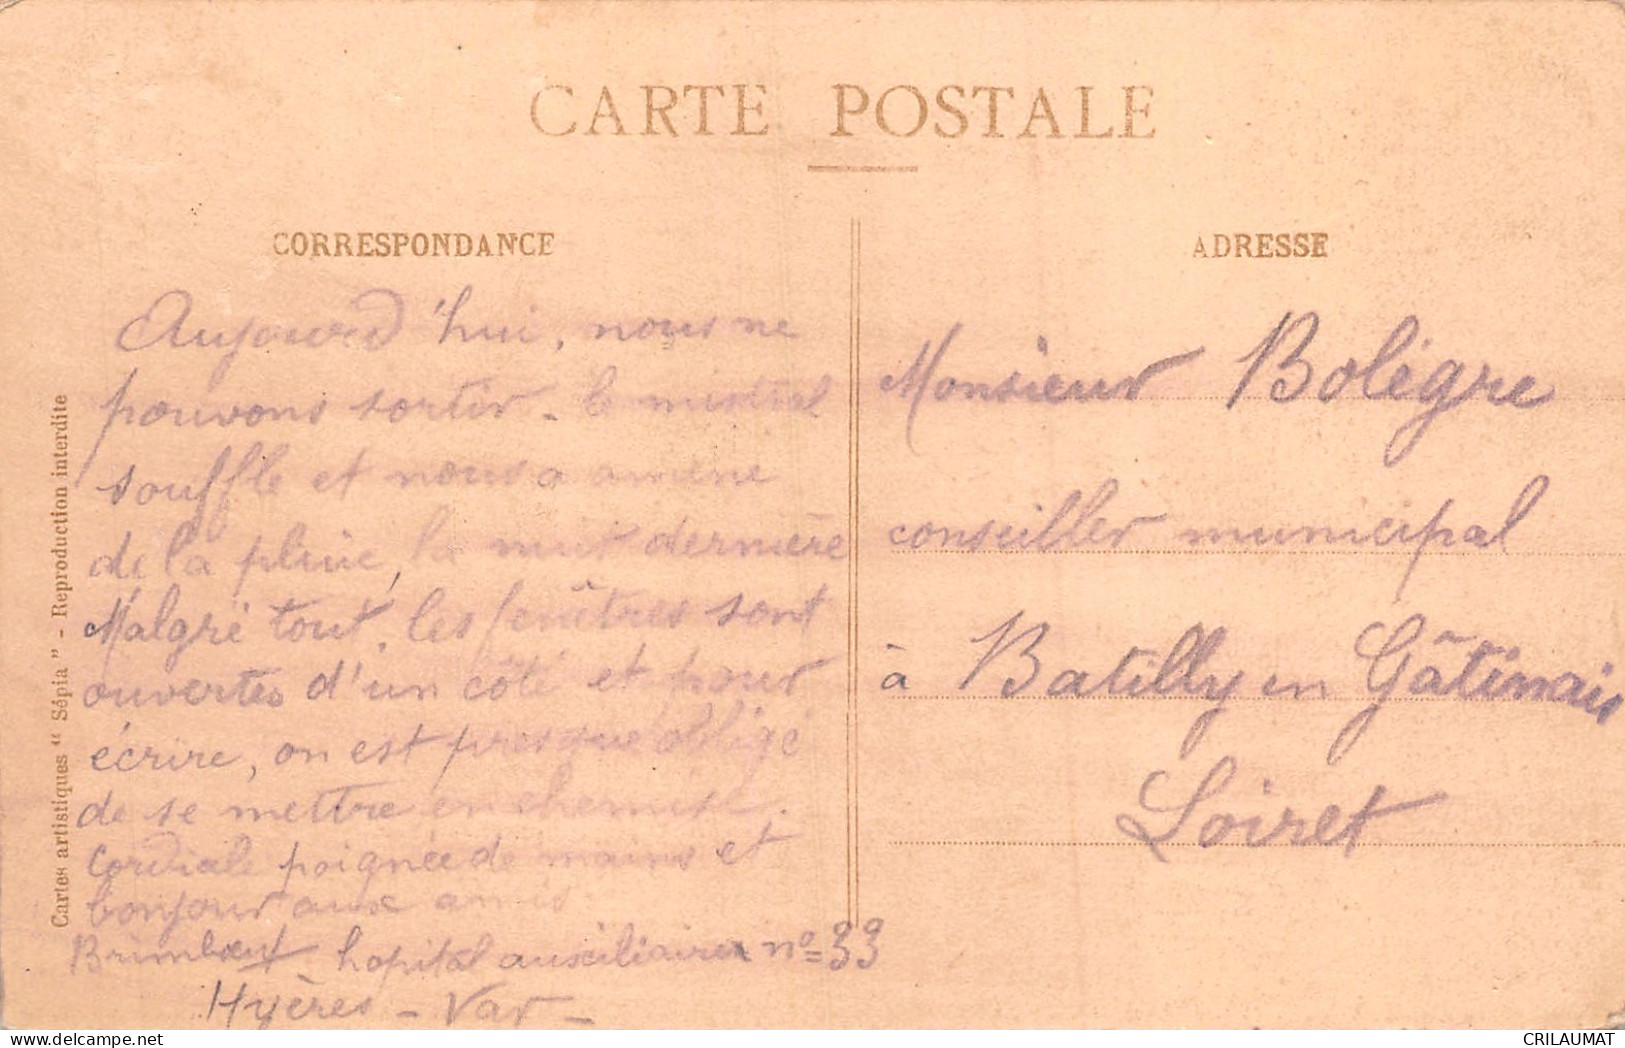 CARTE POSTALE
CORRESPONDANCE
Aujourd'hui, nous ne
pouvons sortir - le mistral
souffle et nous a amené
de la pluie, la nuit dernière
Malgré tout, les fenêtres sont
ouvertes d'un côté et pour
écrire, on est presque obligé
de se mettre en chemise.
Cordiale poignée de mains et
bonjour aux amis
Brimbœuf - hopital auxiliaire nº 33
Hyères - Var -
ADRESSE
Monsieur Bolègre
conseiller municipal
à Batilly en Gâtinais
Loiret
Cartes artistiques "Sépia" - Reproduction interdite
CRILAUMAT